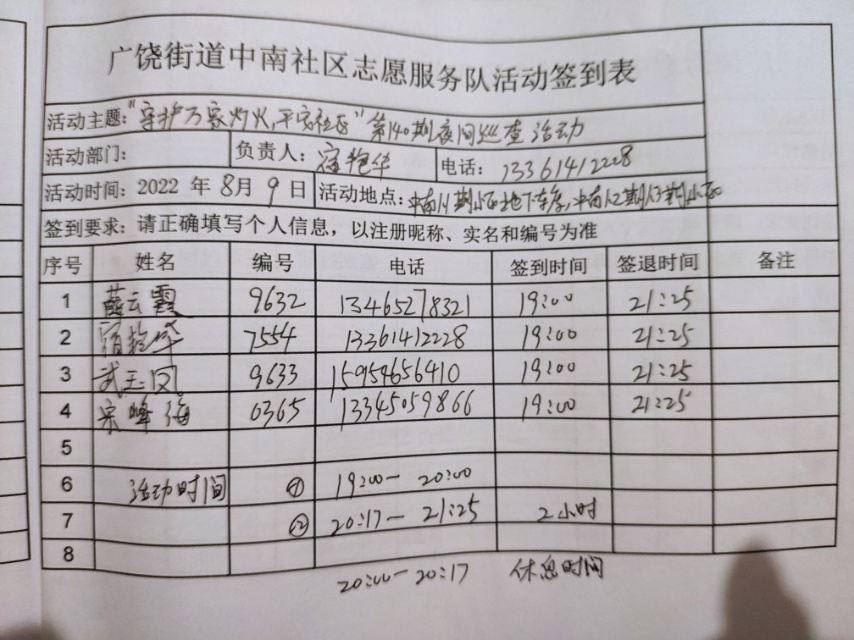 广饶街道中南社区志愿服务队活动签到表
活动主题：“守护万家灯火，平安社区”第140期夜间巡查活动
活动部门： 负责人：艳华 电话：13361412228
活动时间：2022 年 8月 9 日 活动地点：中南八期小区地下车库，
签到要求：请正确填写个人信息，以注册昵称、实名和编号为准
序号 姓名 编号 电话 签到时间 签退时间 备注
1 薛云霞 9632 13465278321 19:00 21:25
2 7554 13361412228 19:00 21:25
3 武玉凤 9633 15954656410 19:00 21:25
4 宋峰海 0365 13345059866 19:00 21:25
5
6 活动时间 ① 19:00— 20:00
7 ② 20:17— 21:25 2小时
8
20:00— 20:17 休息时间